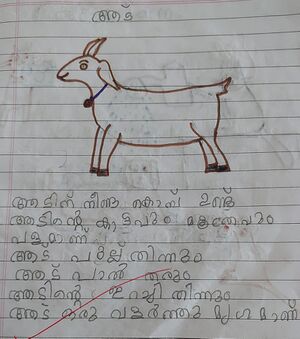 ആട്
ആടിന് നീണ്ട കൊമ്പ് ഉണ്ട്
ആടിന്റെ കാഷ്ടവും മൂത്രവും
വളമാണ്
ആട് പുല്ല് തിന്നും
ആട് പാൽ തരും
ആടിന്റെ ഇറച്ചി തിന്നും
ആട് ഒരു വളർത്തു മൃഗമാണ്